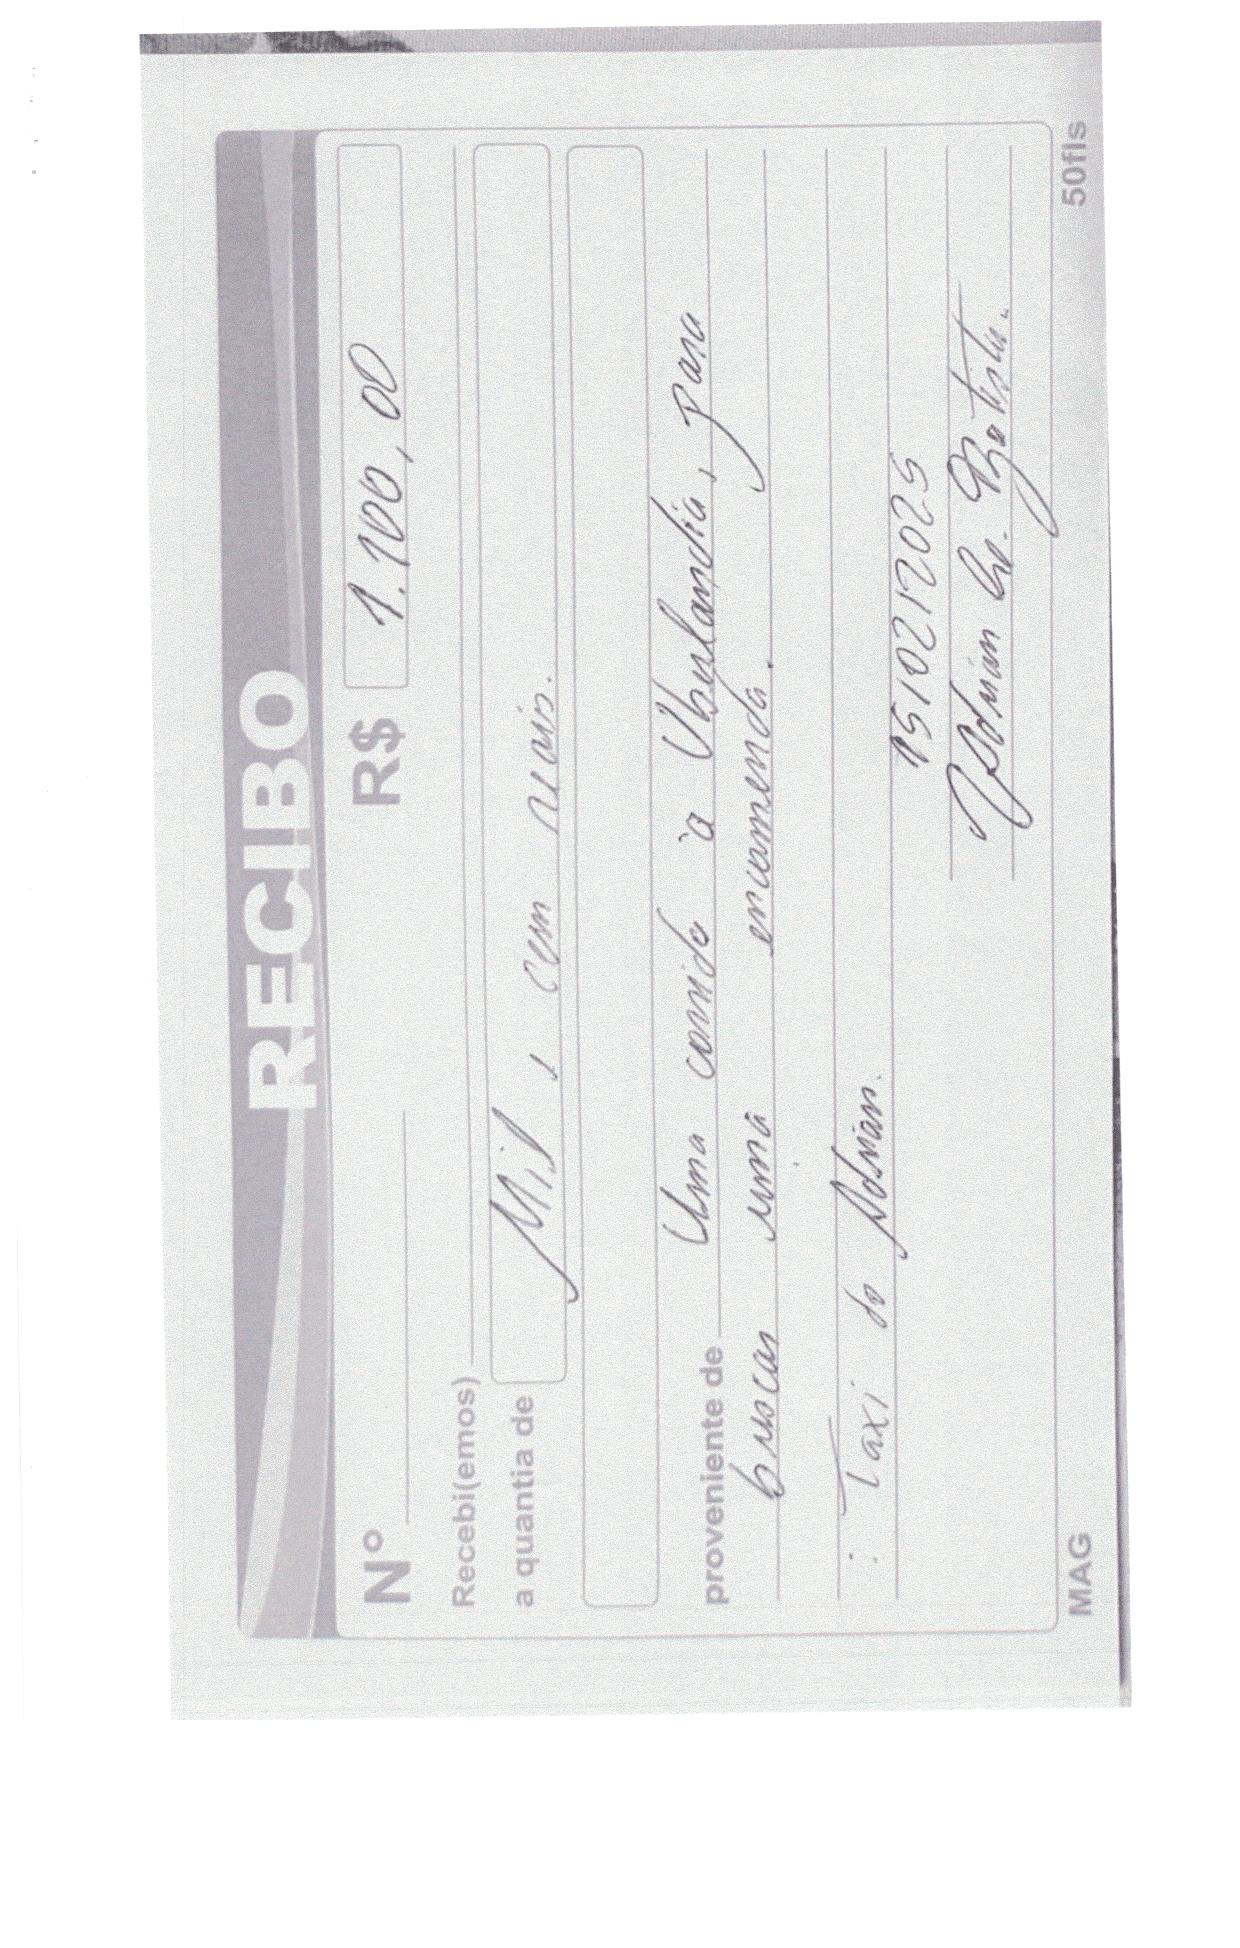 RECIBO
Nº R$ 1.100,00
Recebi(emos)
a quantia de Mil, cem reais.
proveniente de Uma corrida à Uberlandia, para
buscar uma encomenda.
: Taxi do Adrian.
15/02/2025
Adrian Batista.
MAG 50fls